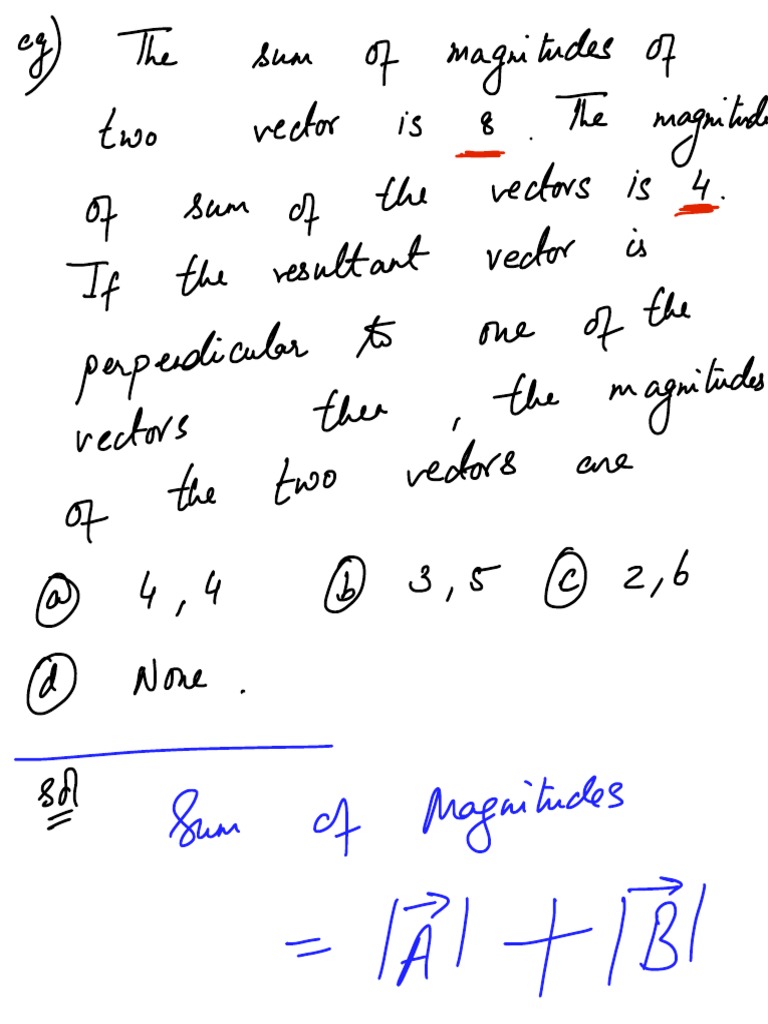 eg) The sum of magnitudes of
two vector is 8. The magnitude
of sum of the vectors is 4.
If the resultant vector is
perpendicular to one of the
vectors then, the magnitudes
of the two vectors are
(a) 4, 4 (b) 3, 5 (c) 2, 6
(d) None.
Sol
Sum of Magnitudes
= |A⃗| + |B⃗|